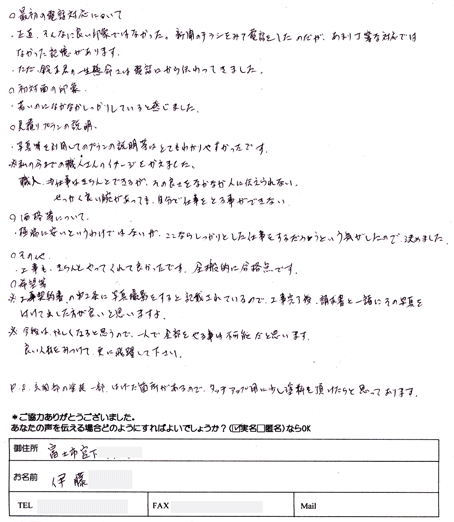 ○最初の電話対応について
・正直、そんなに良い印象ではなかった。新聞のチラシをみて電話をしたのだが、あまり丁寧な対応では
なかった記憶があります。
・ただ、一生懸命さは電話口から伝わってきました。
○初対面の印象
・若いのになかなかしっかりしていると感じました。
○見積りプランの説明
・写真等を利用してのプランの説明等はとてもわかりやすかったです。
※私の今までの職人さんのイメージをかえました。
職人→仕事はきちんとできるが、その良さをなかなか人に伝えられない。
せっかく良い腕があっても、自分で仕事をとる事ができない。
○価格等について
・極端に安いというわけではないが、ここならしっかりとした仕事をするだろうという気がしたので、決めました。
○その他
・工事も、きちんとやってくれて良かったです。全般的に合格点です。
○希望等
※工事契約書の中に写真撮影をすると記載されているので、工事完了後、請求書と一緒にその写真を
つけてました方が良いと思いますよ。
※今後は、忙しくなると思うので、一人で全部をやる事は不可能だと思います。
良い人材をみつけて、更に飛躍して下さい。
P.S. 玄関部の塗装一部、はげた箇所があるので、タッチアップ用に少し塗料を頂けたらと思っております。
*ご協力ありがとうございました。
あなたの声を伝える場合どのようにすればよいでしょうか?(☑実名□匿名)ならOK
御住所 富士市宮下...
お名前 伊藤
TEL FAX Mail